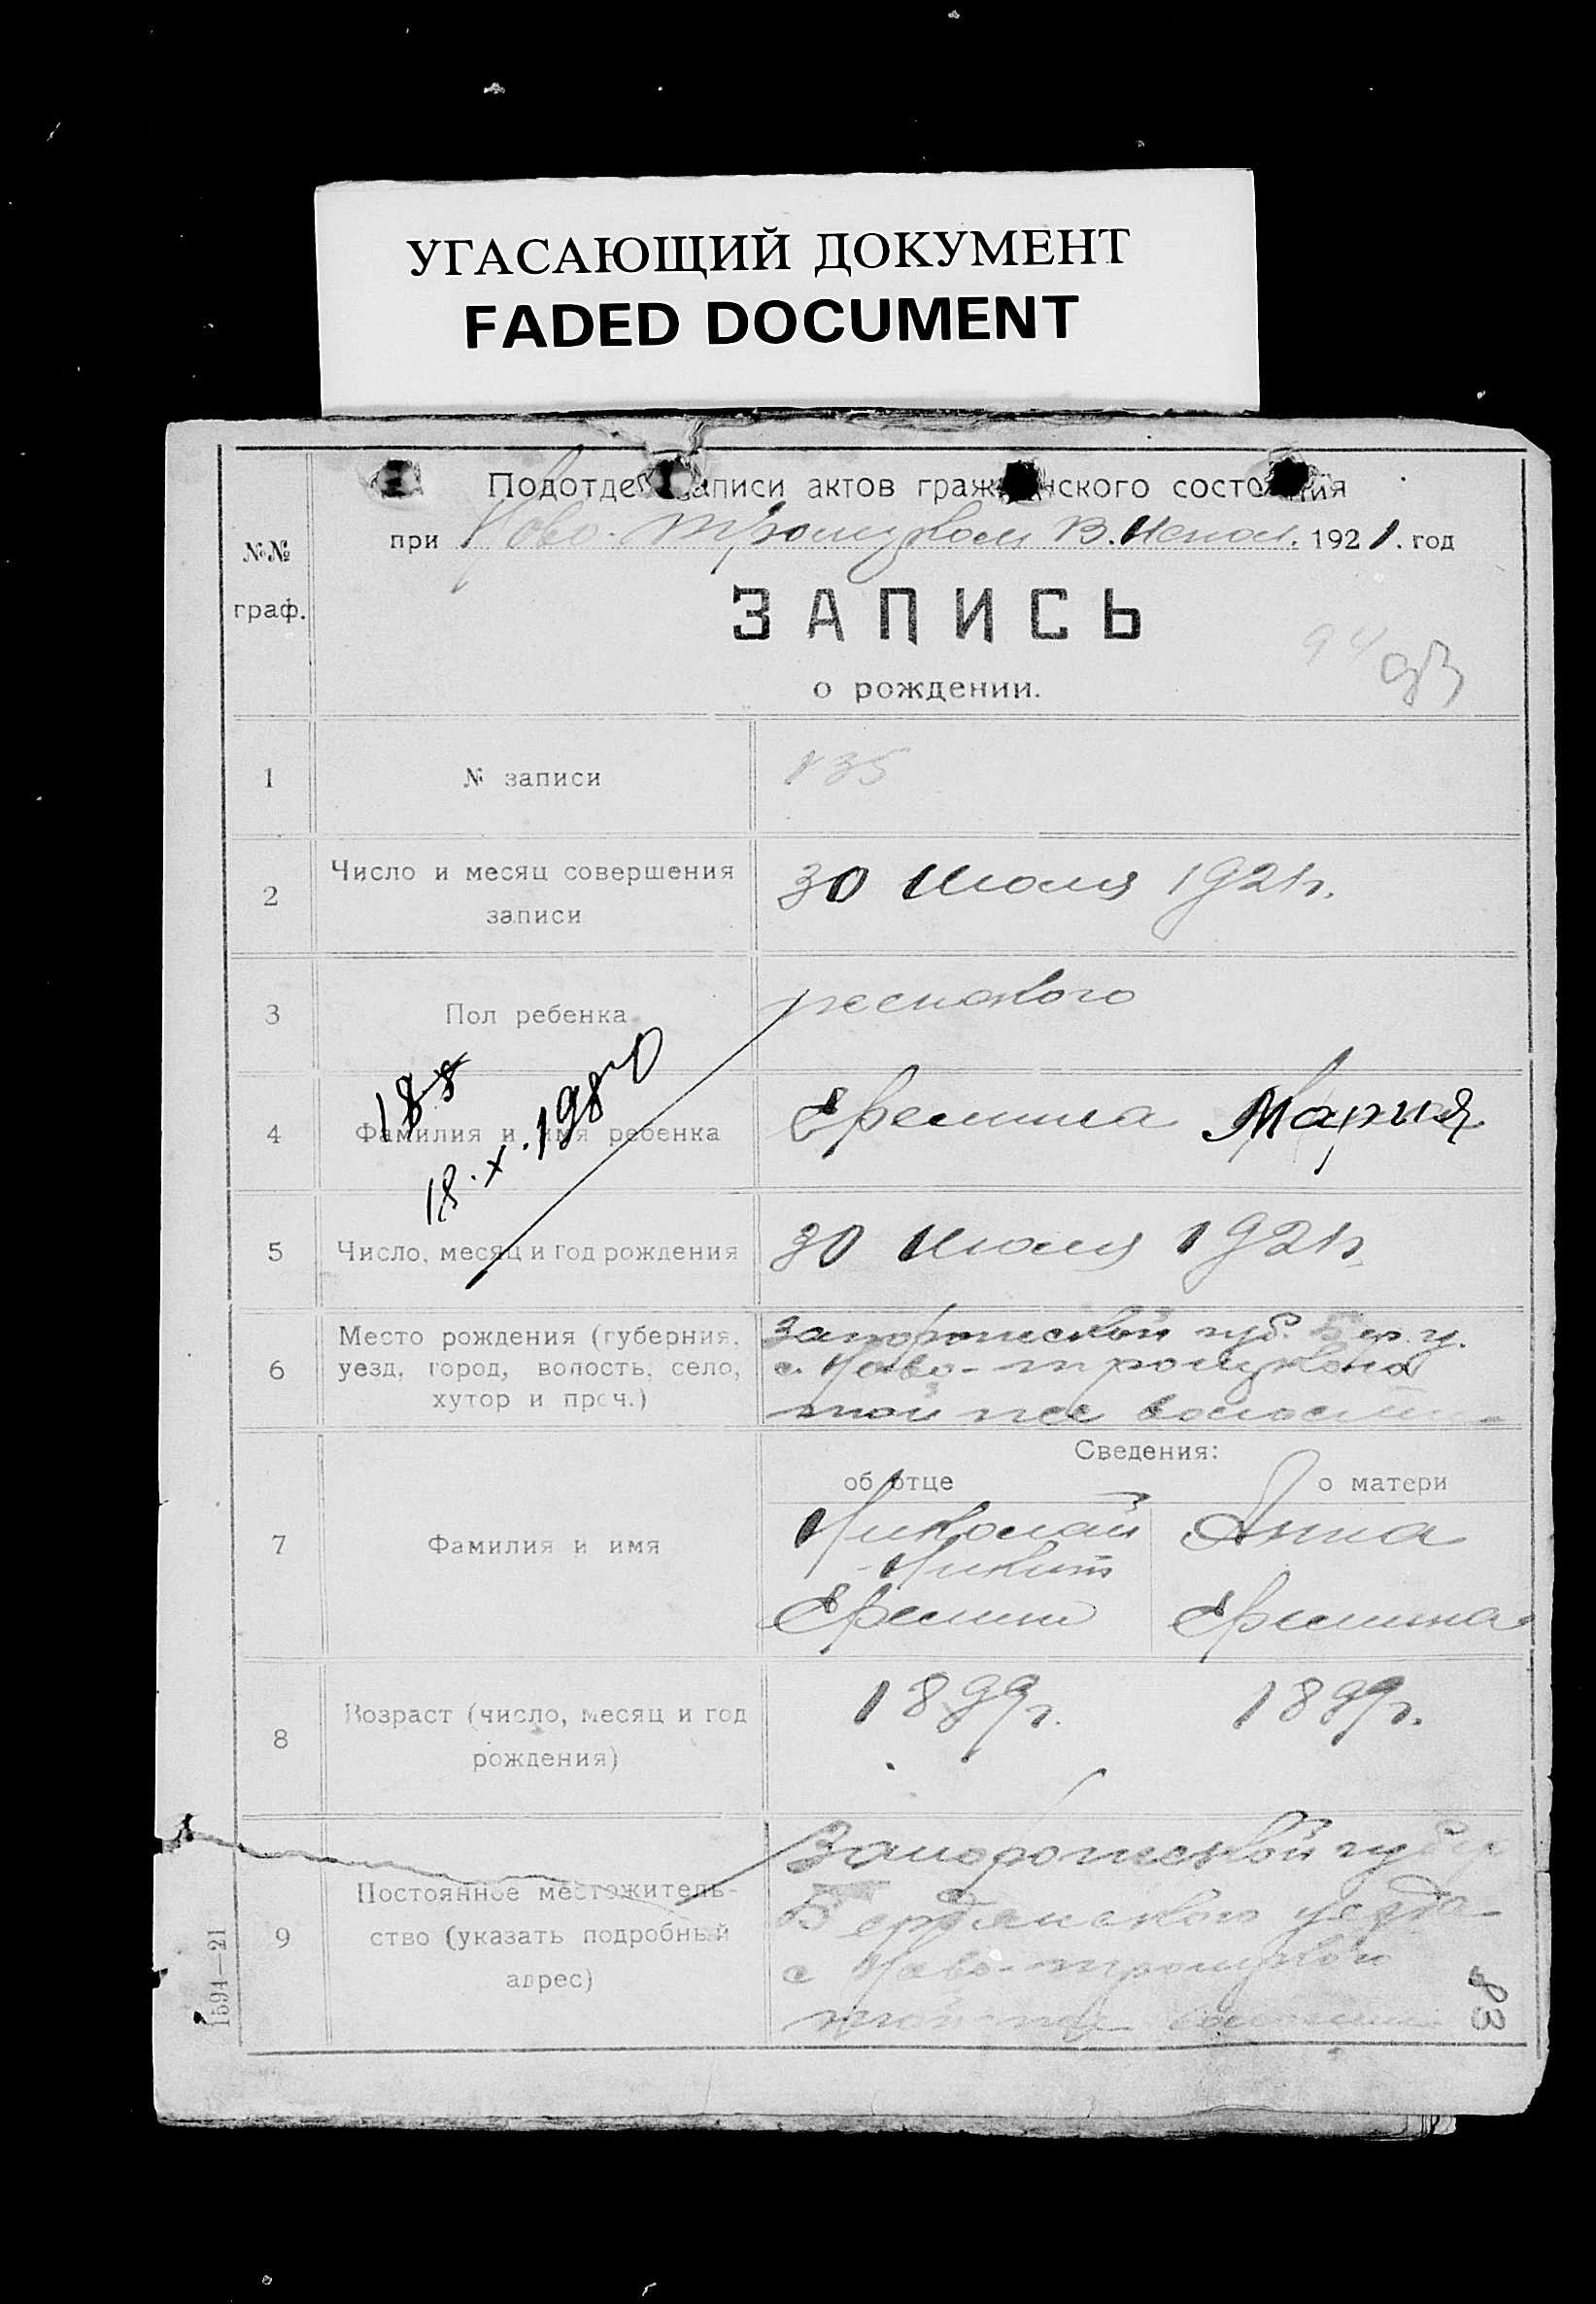 УГАСАЮЩИЙ ДОКУМЕНТ
FADED DOCUMENT
Подотдел записи актов гражданского состояния
№№
граф.
при Ново-Троицком В. Испол. 1921. год
ЗАПИСЬ
о рождении.
93
1 № записи 135
2 Число и месяц совершения
записи
30 Июля 1921 г.
3 Пол ребенка
женского
4 Фамилия и имя ребенка
Еремина Мария
18.X.198
5 Число, месяц и год рождения
30 Июля 1921 г.
6 Место рождения (губерния,
уезд, город, волость, село,
хутор и проч.)
Запорожской губ. Бер. у.
с. Ново-Троицкова
той же волости
Сведения:
об отце о матери
7 Фамилия и имя
Николай Анна
Никит
Еремин Еремина
8 Возраст (число, месяц и год
рождения)
1899 г. 1899 г.
9 Постоянное местожитель-
ство (указать подробный
адрес)
Запорожской губер
Бердянского уезда
с Ново-Троицкой
той же волости
83
1594—21